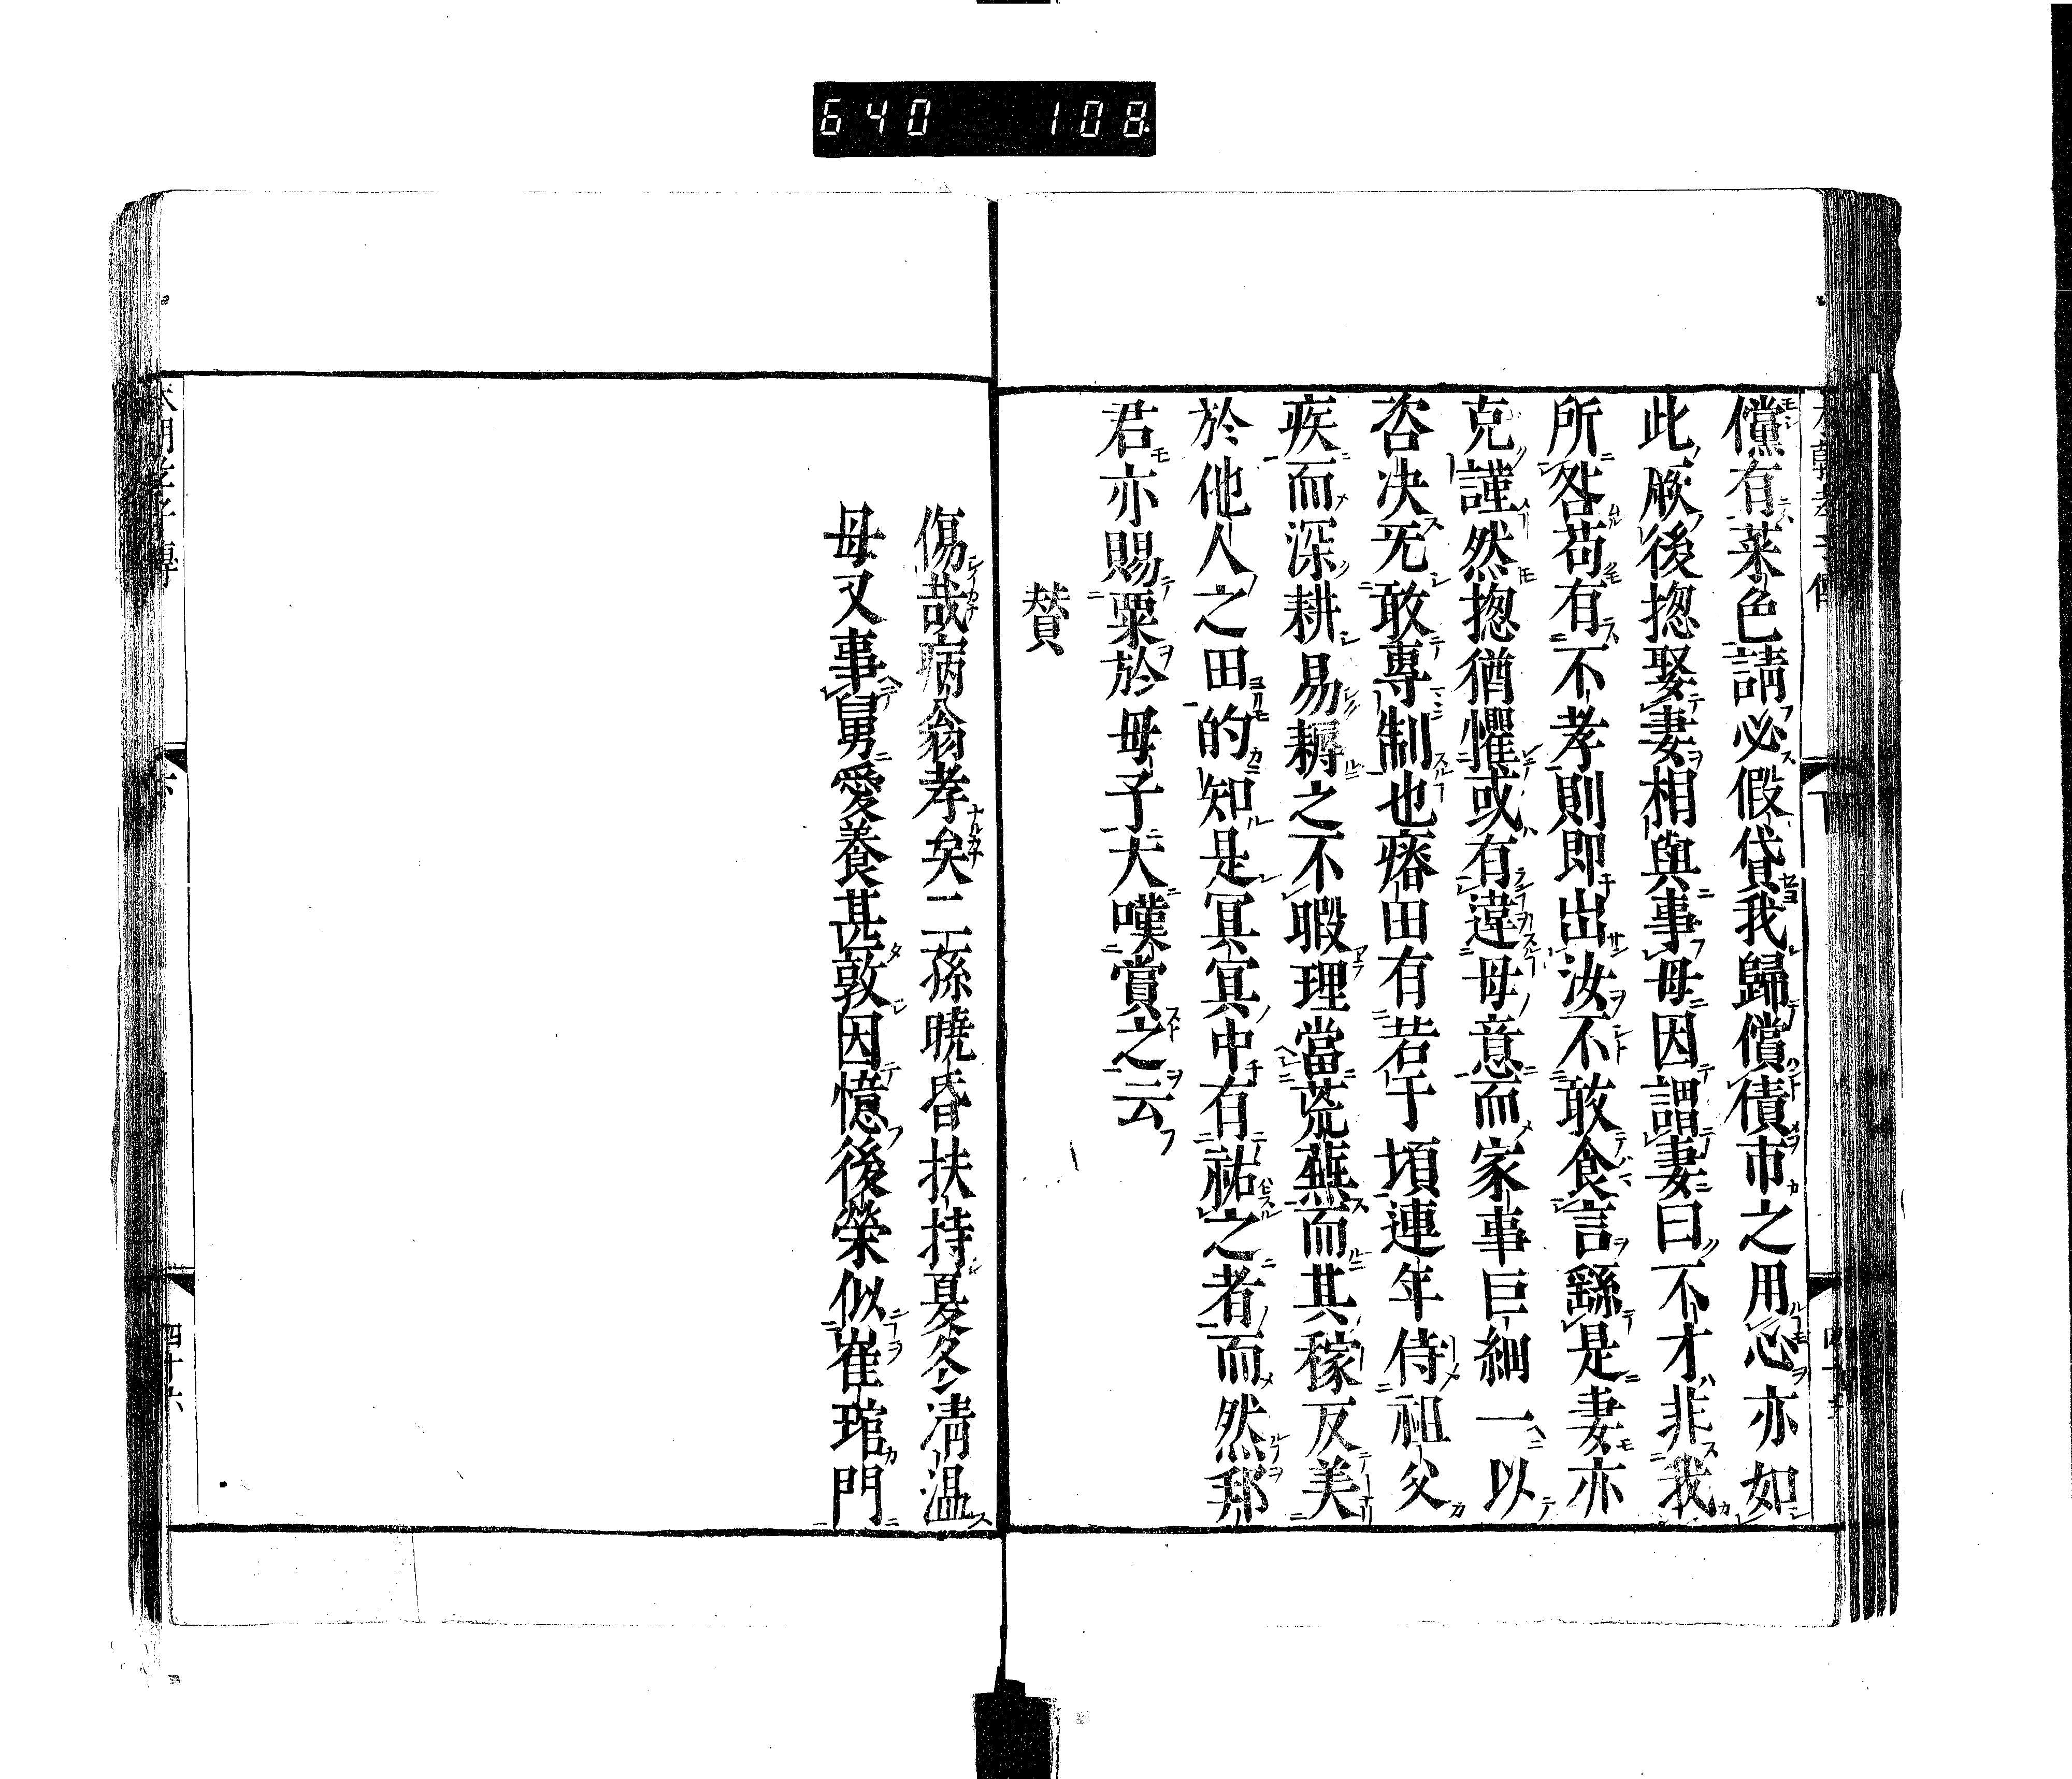 640 108
儻有菜色請必假貸我歸償債市之用心亦如
此厥後揔娶妻相與事母因謂妻曰不才非我
所咎苟有不孝則即出汝不敢食言繇是妻亦
克謹然揔猶懼或有違母意而家事巨細一以
咨决无敢專制也瘠田有若于頃連年侍祖父
疾而深耕易耨之不暇理當荒蕪而其稼反美
於他人之田的知是冥冥中有祐之者而然邪
君亦賜粟於母子大嘆賞之云
賛
傷哉病翁孝矣二孫曉昏扶持夏冬凊温
母又事舅愛養甚敦因憶後榮似崔琯門
本朝孝子傳
四十六